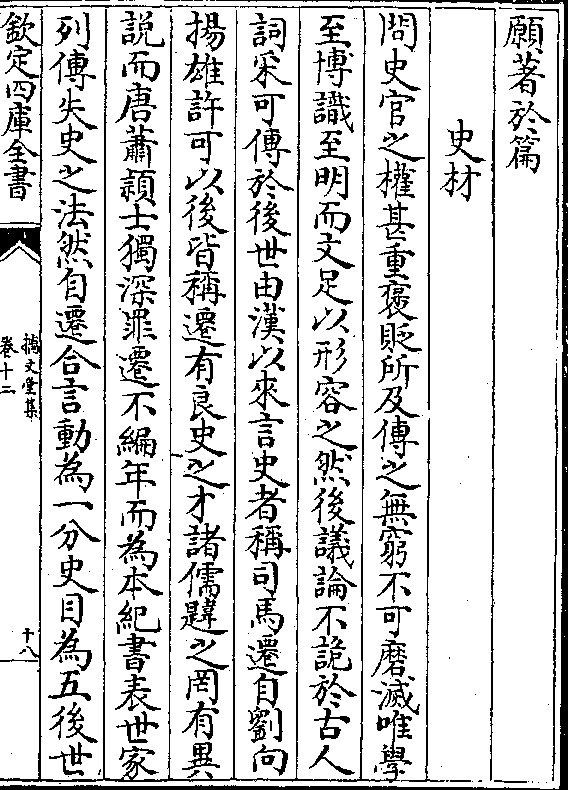 願著於篇
史材
問史官之權甚重褒貶所及傳之無窮不可磨滅唯學
至博識至明而文足以形容之然後議論不詭於古人
詞采可傳於後世由漢以來言史者稱司馬遷自劉向
揚雄許可以後皆稱遷有良史之才諸儒韙之罔有異
說而唐蕭頴士獨深罪遷不編年而為本紀書表世家
列傳失史之法然自遷合言動為一分史目為五後世
欽定四庫全書
摛文堂集
卷十二
十八